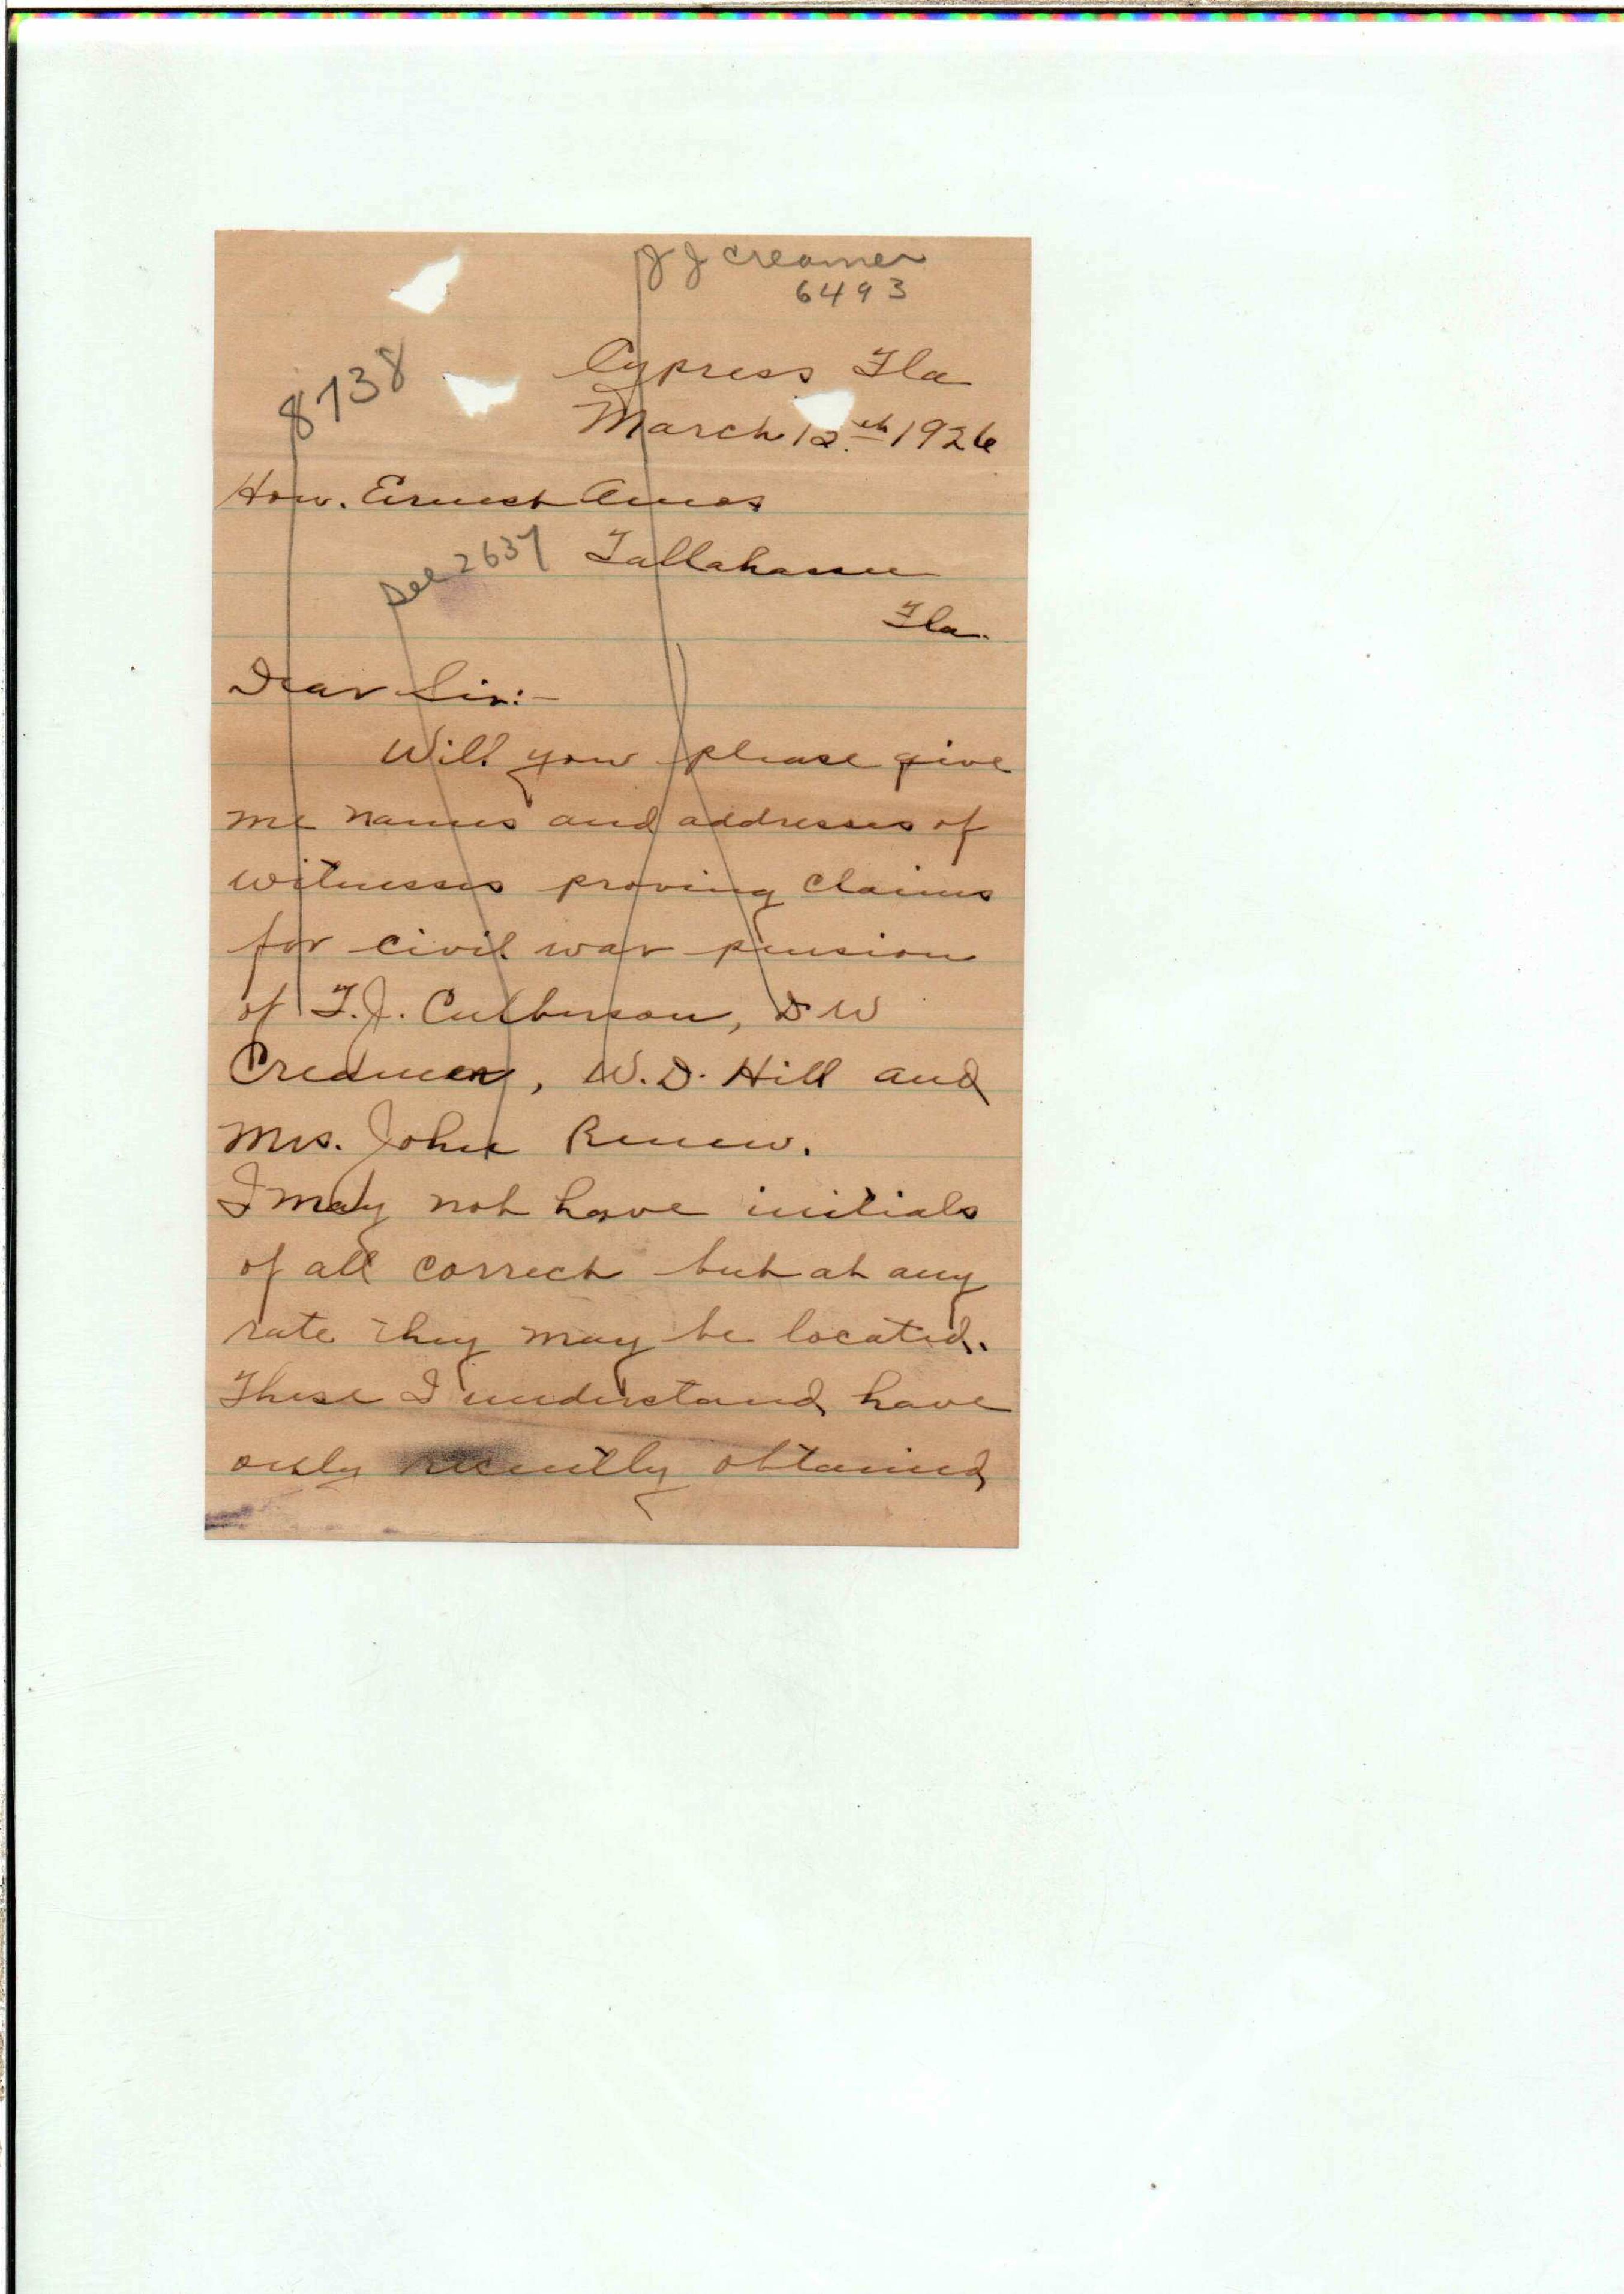 J J Creamer
6493
8738
Cypress Fla
March 12th 1926
Hon. Ernest Amos
See 2637
Tallahassee
Fla.
Dear Sir:-
Will you please give
me names and addresses of
witnesses proving claims
for civil war pension
of T.J. Culberson, D W
Creamer, W.D. Hill and
Mrs. John Renew.
I may not have initials
of all correct but at any
rate they may be located.
These I understand have
only recently obtained